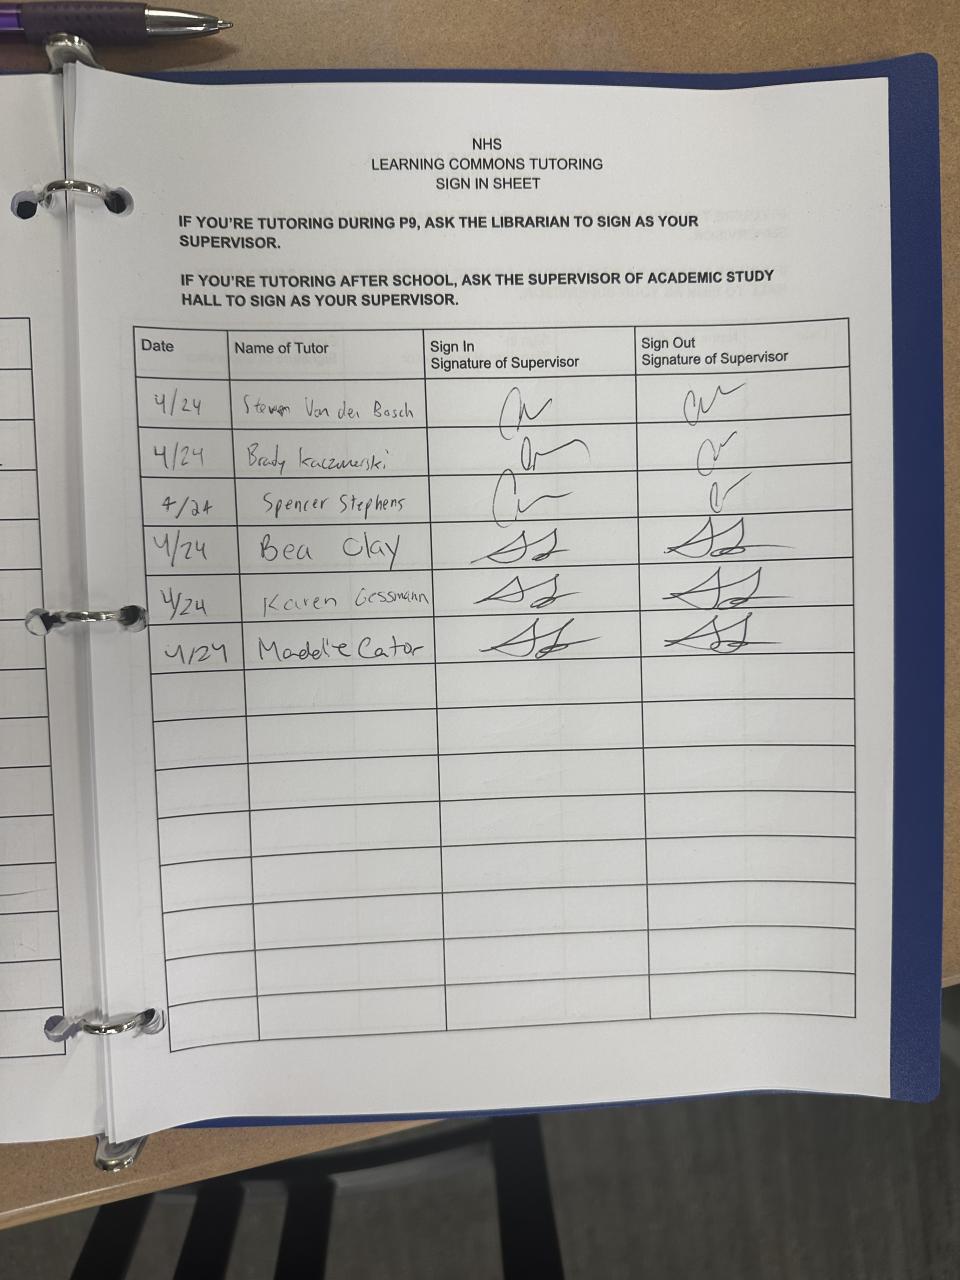 NHS
LEARNING COMMONS TUTORING
SIGN IN SHEET
IF YOU'RE TUTORING DURING P9, ASK THE LIBRARIAN TO SIGN AS YOUR
SUPERVISOR.
IF YOU'RE TUTORING AFTER SCHOOL, ASK THE SUPERVISOR OF ACADEMIC STUDY
HALL TO SIGN AS YOUR SUPERVISOR.
Date Name of Tutor Sign In Sign Out
Signature of Supervisor Signature of Supervisor
4/24 Steven Van den Bosch
4/24 Brady Kaczmerski
4/24 Spencer Stephens
4/24 Bea Clay
4/24 Karen Gessmann
4/24 Maddie Cator